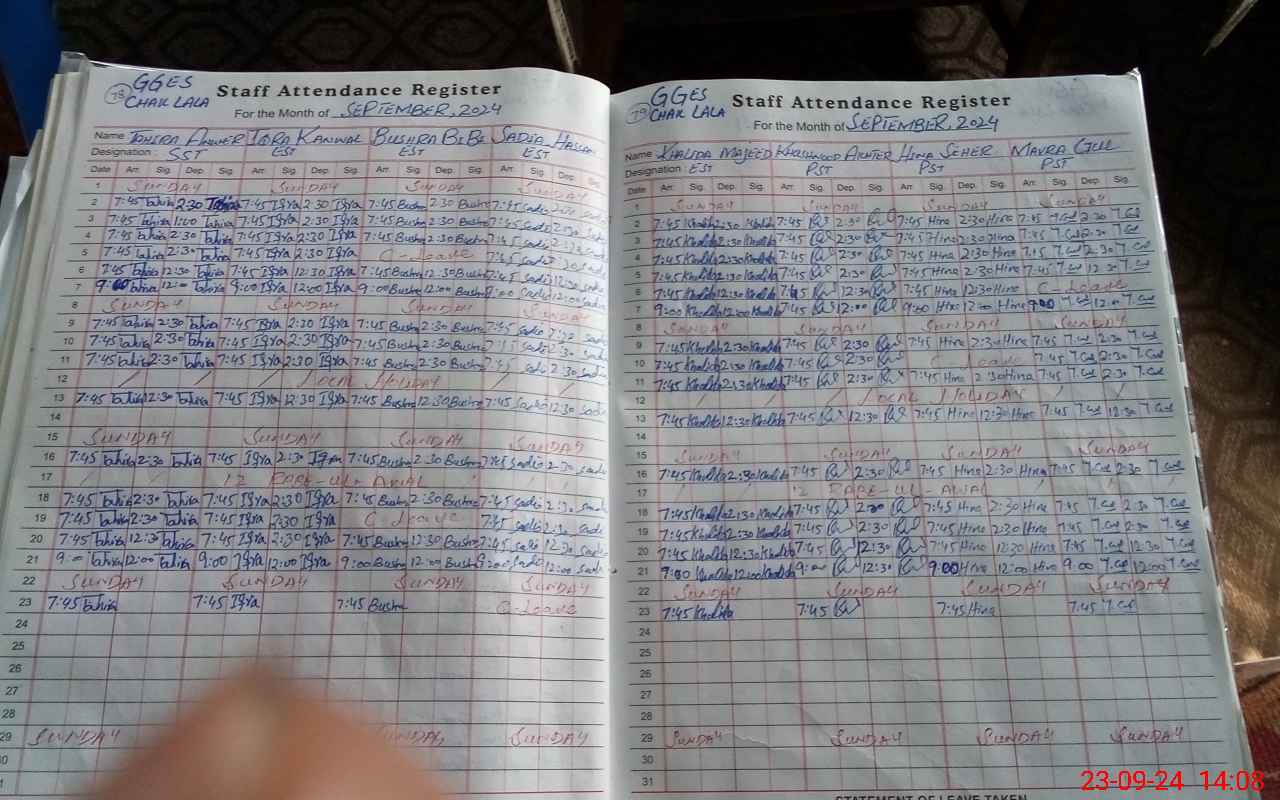 78 GGES
CHAK LALA
Staff Attendance Register
For the Month of SEPTEMBER, 2024
Name TAHIRA ANWER IQRA KANWAL BUSHRA BiBi SADIA HASSAN
Designation: SST EST EST EST
Date Arr. Sig. Dep. Sig. Arr. Sig. Dep. Sig. Arr. Sig. Dep. Sig. Arr. Sig. Dep. Sig.
1 SUNDAY SUNDAY SUNDAY SUNDAY
2 7:45 Tahira 2:30 Tahira 7:45 Iqra 2:30 Iqra 7:45 Bushra 2:30 Bushra 7:45 Sadia
3 7:45 Tahira 1:00 Tahira 7:45 Iqra 2:30 Iqra 7:45 Bushra 2:30 Bushra 7:45 Sadia
4 7:45 Tahira 2:30 Tahira 7:45 Iqra 2:30 Iqra 7:45 Bushra 2:30 Bushra 7:45 Sadia
5 7:45 Tahira 2:30 Tahira 7:45 Iqra 2:30 Iqra C-Leave 7:45 Sadia
6 7:45 Tahira 12:30 Tahira 7:45 Iqra 12:30 Iqra 7:45 Bushra 12:30 Bushra 7:45 Sadia 12:30 Sadia
7 9:00 Tahira 12:00 Tahira 9:00 Iqra 12:00 Iqra 9:00 Bushra 12:00 Bushra 9:00 Sadia 12:00 Sadia
8 SUNDAY SUNDAY SUNDAY
9 7:45 Tahira 2:30 Tahira 7:45 Iqra 2:30 Iqra 7:45 Bushra 2:30 Bushra 7:45 Sadia
10 7:45 Tahira 2:30 Tahira 7:45 Iqra 2:30 Iqra 7:45 Bushra 2:30 Bushra 7:45 Sadia
11 7:45 Tahira 2:30 Tahira 7:45 Iqra 2:30 Iqra 7:45 Bushra 2:30 Bushra 7:45 Sadia 2:30 Sadia
12 LOCAL HOLIDAY
13 7:45 Tahira 12:30 Tahira 7:45 Iqra 12:30 Iqra 7:45 Bushra 12:30 Bushra 7:45 Sadia 12:30 Sadia
14
15 SUNDAY SUNDAY SUNDAY SUNDAY
16 7:45 Tahira 2:30 Tahira 7:45 Iqra 2:30 Iqra 7:45 Bushra 2:30 Bushra 7:45 Sadia 2:30 Sadia
17 12 RABE-UL-AWAL
18 7:45 Tahira 2:30 Tahira 7:45 Iqra 2:30 Iqra 7:45 Bushra 2:30 Bushra 7:45 Sadia 2:30 Sadia
19 7:45 Tahira 2:30 Tahira 7:45 Iqra 2:30 Iqra C-Leave 7:45 Sadia 2:30 Sadia
20 7:45 Tahira 12:30 Tahira 7:45 Iqra 2:30 Iqra 7:45 Bushra 12:30 Bushra 7:45 Sadia 12:30 Sadia
21 9:00 Tahira 12:00 Tahira 9:00 Iqra 12:00 Iqra 9:00 Bushra 12:00 Bushra 9:00 Sadia 12:00 Sadia
22 SUNDAY SUNDAY SUNDAY SUNDAY
23 7:45 Tahira 7:45 Iqra 7:45 Bushra C-Leave
24
25
26
27
28
29 SUNDAY SUNDAY SUNDAY
79 GGES
CHAK LALA
Staff Attendance Register
For the Month of SEPTEMBER, 2024
Name KHALIDA MAJEED KHUSHNOOD AKHTER HINA SEHER MAVRA GULL
Designation: EST PST PST PST
Date Arr. Sig. Dep. Sig. Arr. Sig. Dep. Sig. Arr. Sig. Dep. Sig. Arr. Sig. Dep. Sig.
1 SUNDAY SUNDAY SUNDAY SUNDAY
2 7:45 Khalida 2:30 Khalida 7:45 2:30 7:45 Hina 2:30 Hina 7:45 2:30
3 7:45 Khalida 2:30 Khalida 7:45 2:30 7:45 Hina 2:30 Hina 7:45 2:30
4 7:45 Khalida 2:30 Khalida 7:45 2:30 7:45 Hina 2:30 Hina 7:45 2:30
5 7:45 Khalida 2:30 Khalida 7:45 2:30 7:45 Hina 2:30 Hina 7:45 12:30
6 7:45 Khalida 12:30 Khalida 7:45 12:30 7:45 Hina 12:30 Hina C-Leave
7 9:00 Khalida 12:00 Khalida 7:45 12:00 9:00 Hina 12:00 Hina 9:00 12:00
8 SUNDAY SUNDAY SUNDAY SUNDAY
9 7:45 Khalida 2:30 Khalida 7:45 2:30 7:45 Hina 2:30 Hina 7:45 2:30
10 7:45 Khalida 2:30 Khalida 7:45 2:30 C-Leave 7:45 2:30
11 7:45 Khalida 2:30 Khalida 7:45 2:30 7:45 Hina 2:30 Hina 7:45 2:30
12 LOCAL HOLIDAY
13 7:45 Khalida 12:30 Khalida 7:45 12:30 7:45 Hina 12:30 Hina 7:45 12:30
14
15 SUNDAY SUNDAY SUNDAY SUNDAY
16 7:45 Khalida 2:30 Khalida 7:45 2:30 7:45 Hina 2:30 Hina 7:45 2:30
17 12 RABE-UL-AWAL
18 7:45 Khalida 2:30 Khalida 7:45 2:30 7:45 Hina 2:30 Hina 7:45 2:30
19 7:45 Khalida 2:30 Khalida 7:45 2:30 7:45 Hina 2:20 Hina 7:45 2:30
20 7:45 Khalida 12:30 Khalida 7:45 12:30 7:45 Hina 12:20 Hina 7:45 12:30
21 9:00 Khalida 12:00 Khalida 9:00 12:30 9:00 Hina 12:00 Hina 9:00 12:00
22 SUNDAY SUNDAY SUNDAY SUNDAY
23 7:45 Khalida 7:45 7:45 Hina 7:45
24
25
26
27
28
29 SUNDAY SUNDAY SUNDAY SUNDAY
30
31
STATEMENT OF LEAVE TAKEN
23-09-24 14:08